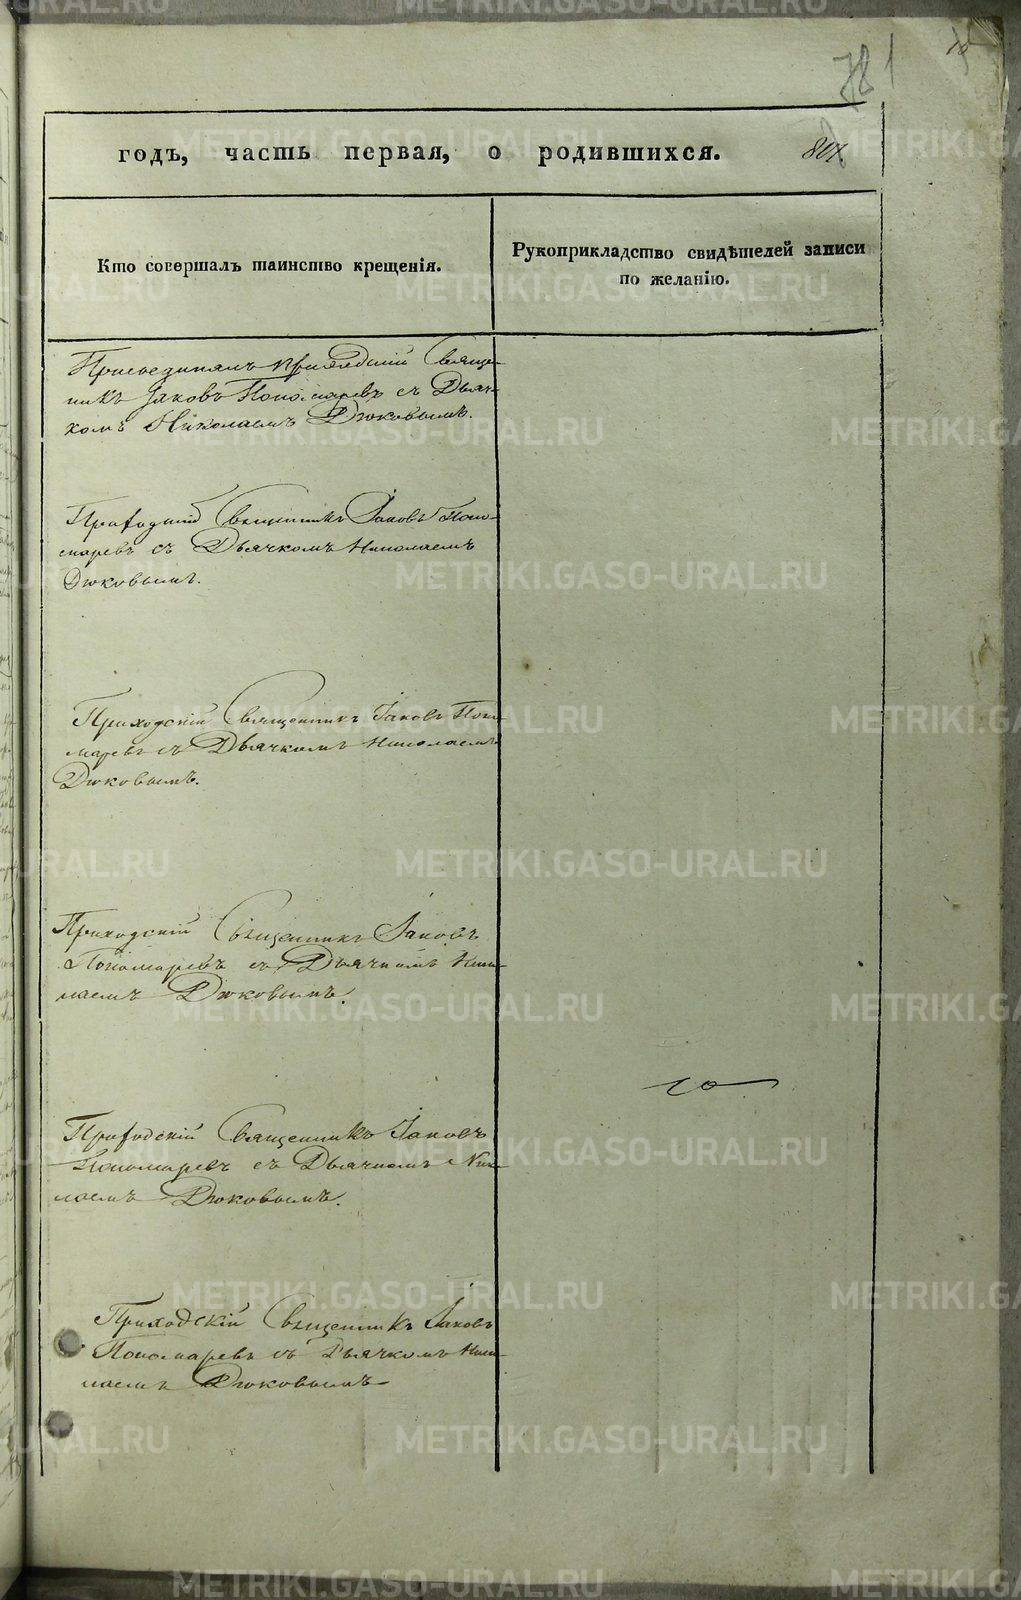 781
годъ, часть первая, о родившихся.
Кто совершалъ таинство крещенія.
Рукоприкладство свидѣтелей записи
по желанію.
Присоединялъ приходскій Священ-
никъ Іаковъ Пономаревъ съ Дьяч-
комъ Николаемъ Дюковымъ.
Приходскій Священникъ Іаковъ Поно-
маревъ съ Дьячкомъ Николаемъ
Дюковымъ.
Приходскій Священникъ Іаковъ Поно-
маревъ съ Дьячкомъ Николаемъ
Дюковымъ.
Приходскій Священникъ Іаковъ
Пономаревъ съ Дьячкомъ Нико-
лаемъ Дюковымъ.
Приходскій Священникъ Іаковъ
Пономаревъ съ Дьячкомъ Нико-
лаемъ Дюковымъ.
Приходскій Священникъ Іаковъ
Пономаревъ съ Дьячкомъ Нико-
лаемъ Дюковымъ
METRIKI.GASO-URAL.RU